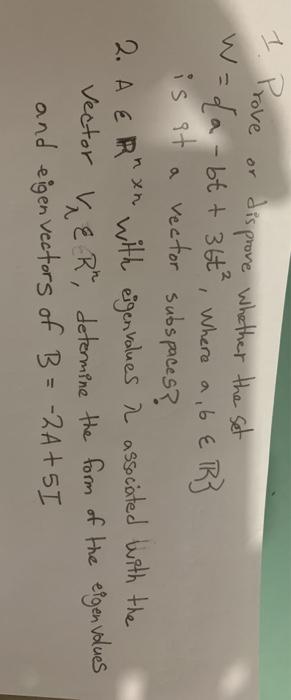 1. Prove or disprove whether the set
W = {a - bt + 3bt², where a, b ∈ ℝ}
is it a vector subspaces?
2. A ∈ ℝⁿˣⁿ with eigenvalues λ associated with the
vector V_λ ∈ ℝⁿ, determine the form of the eigenvalues
and eigenvectors of B = -2A + 5I